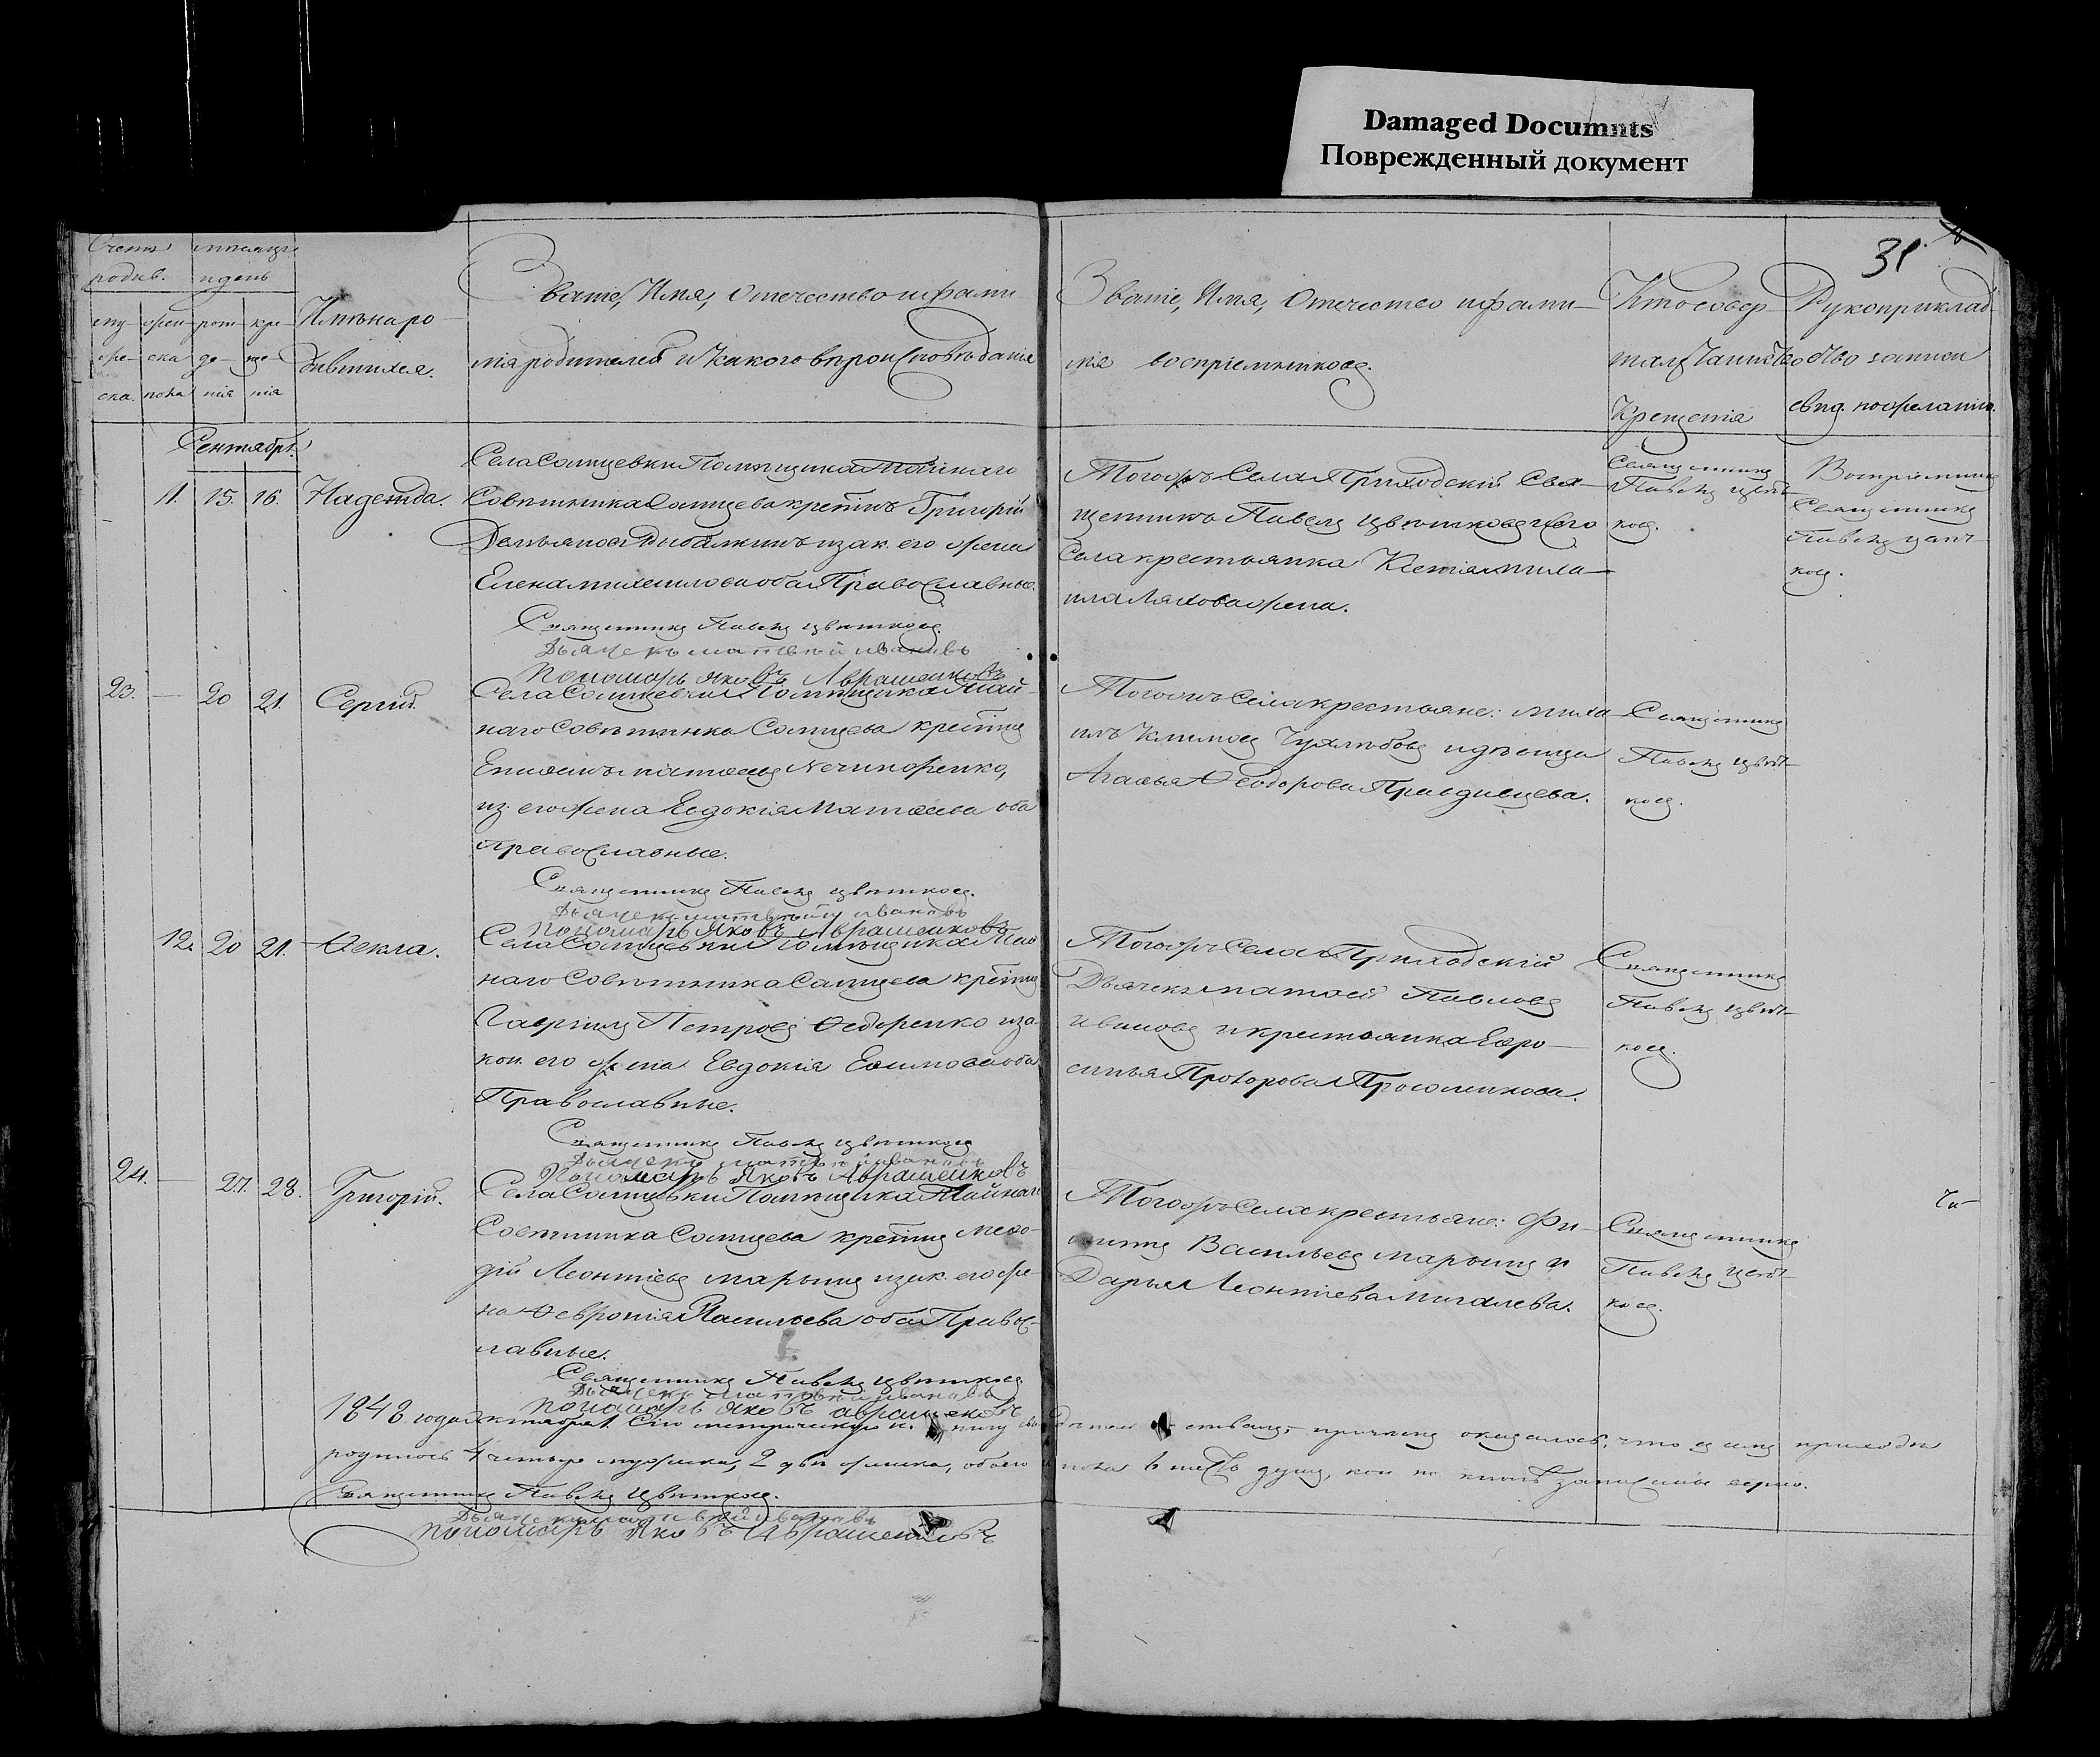 Damaged Documnts
Поврежденный документ
31
Счетъ
родив.
месяцъ
и день
муже-
ска.
жен-
ска
пола
рож-
де-
нія
кре-
ще-
нія
Имяна ро-
дившихся.
Званіе, Имя, Отечество и фами-
лія родителей и какого вѣроисповѣданія
Званіе, Имя, Отечество и фами-
лія воспріемниковъ.
Кто совер-
шалъ таинство
Крещенія
Рукоприклад-
ство записи
свид. по желанію.
Сентябрь
11. 15. 16. Надежда.
Села Солнцевки Помѣщика Тайнаго
Совѣтника Солнцева крестьянинъ Григорій
Демьяновъ и зак. его жена
Елена Михайлова оба Православные.
Священникъ Павелъ Цвѣтковъ.
Дьячекъ Матвей Ивановъ
Пономарь Яковъ Аврашенковъ
Тогожъ Села Приходскій Свя-
щенникъ Павелъ Цвѣтковъ и того
Села крестьянка Ксенія Михай-
ла Ляхова жена.
Священникъ
Павелъ Цвѣт-
ковъ.
Воспріемникъ
Священникъ
Павелъ Цвѣт-
ковъ.
23. — 20 21. Сергій.
Села Солнцевки Помѣщика Тай-
наго Совѣтника Солнцева крестьянинъ
Матвеевъ Нечипоренко,
и з. его жена Евдокія Матвеева оба
Православные.
Священникъ Павелъ Цвѣтковъ.
Дьячекъ Матвей Ивановъ
Пономарь Яковъ Аврашенковъ
Тогожъ Села крестьяне: Миха-
илъ Климовъ и дѣвица
Агафья Ѳеодорова
Священникъ
Павелъ Цвѣт-
ковъ.
12. 20 21. Ѳекла.
Села Солнцевки Помѣщика Тай-
наго Совѣтника Солнцева крестьянинъ
Гавріилъ Петровъ Ѳедоренко и за-
кон. его жена Евдокія Ефимова оба
Православные.
Священникъ Павелъ Цвѣтковъ
Дьячекъ Матвей Ивановъ
Пономарь Яковъ Аврашенковъ
Тогожъ Села Приходскій
Дьячекъ Матвей Павловъ
Ивановъ и крестьянка Евро-
синья Прохорова
Священникъ
Павелъ Цвѣт-
ковъ.
24. — 27. 28. Григорій.
Села Солнцевки Помѣщика Тайнаго
Совѣтника Солнцева крестьянинъ Мефо-
дій Леонтіевъ и зак. его же-
на Ѳевронія Васильева оба Правос-
лавные.
Священникъ Павелъ Цвѣтковъ
Дьячекъ Матвей Ивановъ
Пономарь Яковъ Аврашенковъ
Тогожъ Села крестьяне: Фи-
липпъ Васильевъ и
Дарья Леонтіева Мигалева.
Священникъ
Павелъ Цвѣт-
ковъ.
1848 года Октября 1. Сію метрическую книгу оказалось, что въ семъ приходѣ
родилось 4 четыре мужеска, 2 двѣ женска, обоего пола 6 шесть душъ, кои по книгѣ записаны верно.
Священникъ Павелъ Цвѣтковъ.
Дьячекъ Матвей Ивановъ
Пономарь Яковъ Аврашенковъ